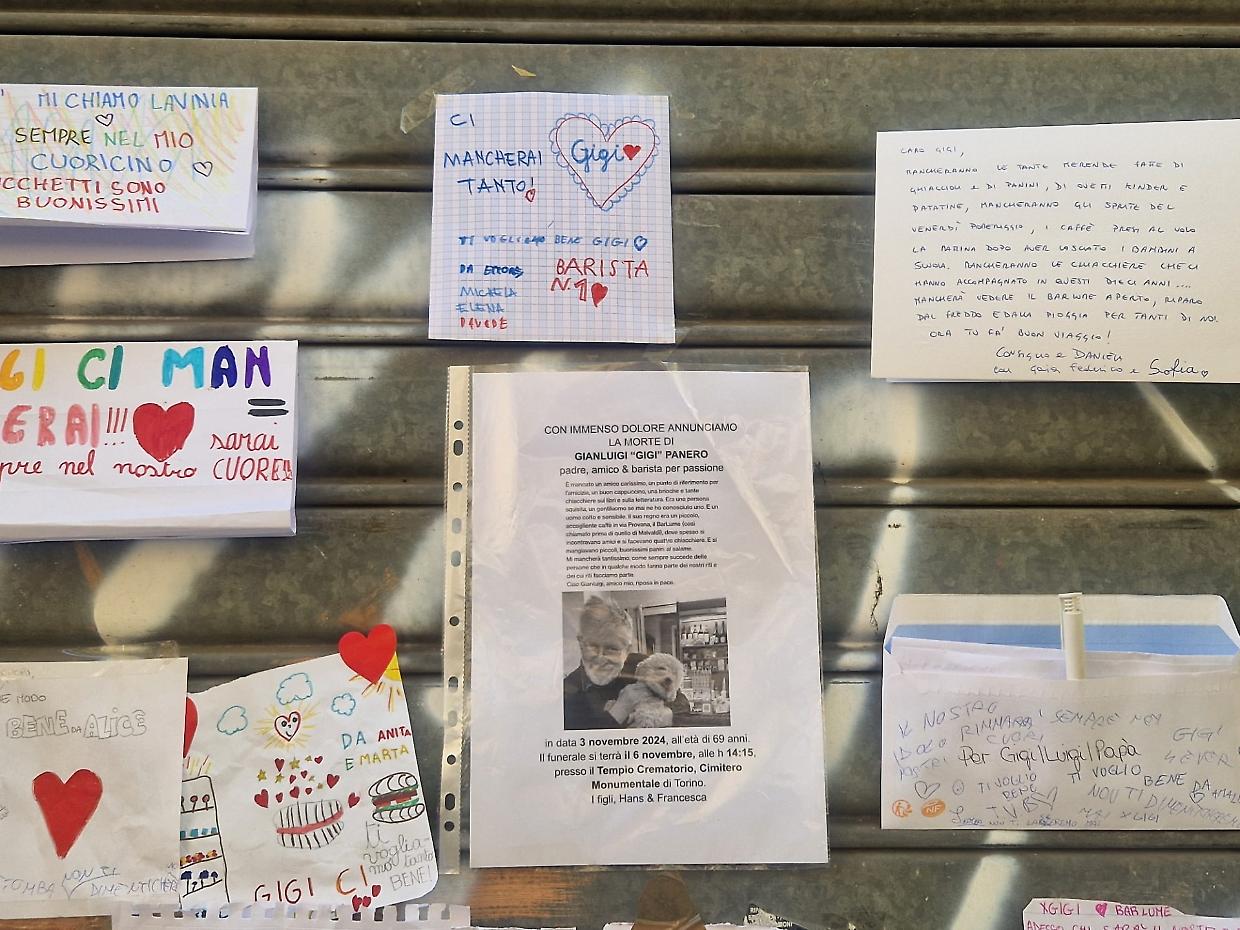 MI CHIAMO LAVINIA
SEMPRE NEL MIO
CUORICINO
CCHETTI SONO
BUONISSIMI
GI CI MAN
ERAI!!!
=
sarai
pre nel nostro CUORE!!
CI
MANCHERAI
TANTO!
Gigi
TI VOGLIAMO BENE GIGI
DA ETTORE
MICHELA
ELENA
DAVIDE
BARISTA
N.1
CARO GIGI,
MANCHERANNO LE TANTE MERENDE FATTE DI
GHIACCIOLI E DI PANINI, DI OVETTI KINDER E
PATATINE, MANCHERANNO GLI SPRITZ DEL
VENERDÌ POMERIGGIO, I CAFFÈ PRESI AL VOLO
LA MATTINA DOPO AVER LASCIATO I BAMBINI A
SCUOLA. MANCHERANNO LE CHIACCHIERE CHE CI
HANNO ACCOMPAGNATO IN QUESTI DIECI ANNI....
MANCHERÀ VEDERE IL BARLUME APERTO, RIPARO
DAL FREDDO E DALLA PIOGGIA PER TANTI DI NOI.
ORA TU FA' BUON VIAGGIO!
E DANIELA
con Gaia Federico e Sofia
CON IMMENSO DOLORE ANNUNCIAMO
LA MORTE DI
GIANLUIGI “GIGI” PANERO
padre, amico & barista per passione
È mancato un amico carissimo, un punto di riferimento per
l'amicizia, un buon cappuccino, una brioche e tante
chiacchiere sui libri e sulla letteratura. Era una persona
squisita, un gentiluomo se mai ne ho conosciuto uno. E un
uomo colto e sensibile. Il suo regno era un piccolo,
accogliente caffè in via Provana, il BarLume (così
chiamato prima di quello di Malvaldi), dove spesso si
incontravano amici e si facevano quattro chiacchiere. E si
mangiavano piccoli, buonissimi panini al salame.
Mi mancherà tantissimo, come sempre succede delle
persone che in qualche modo fanno parte dei nostri riti e
dei cui riti facciamo parte.
Ciao Gianluigi, amico mio, riposa in pace.
in data 3 novembre 2024, all'età di 69 anni.
Il funerale si terrà il 6 novembre, alle h 14:15,
presso il Tempio Crematorio, Cimitero
Monumentale di Torino.
I figli, Hans & Francesca
E MODO
BENE DA ALICE
TOMBA NON TI
DIMENTICHERÀ
DA ANITA
E MARTA
ti
voglia-
mo tanto
BENE!
GIGI CI
NOSTRO
RIMARRAI SEMPRE NEI
CUORI
Per Gigi/Luigi/Papà
GIGI
4 EVER
TI VOGLIO
BENE
TI VOGLIO BENE DA
NON TI
TVB
X GIGI
NF
XGIGI BARLUME